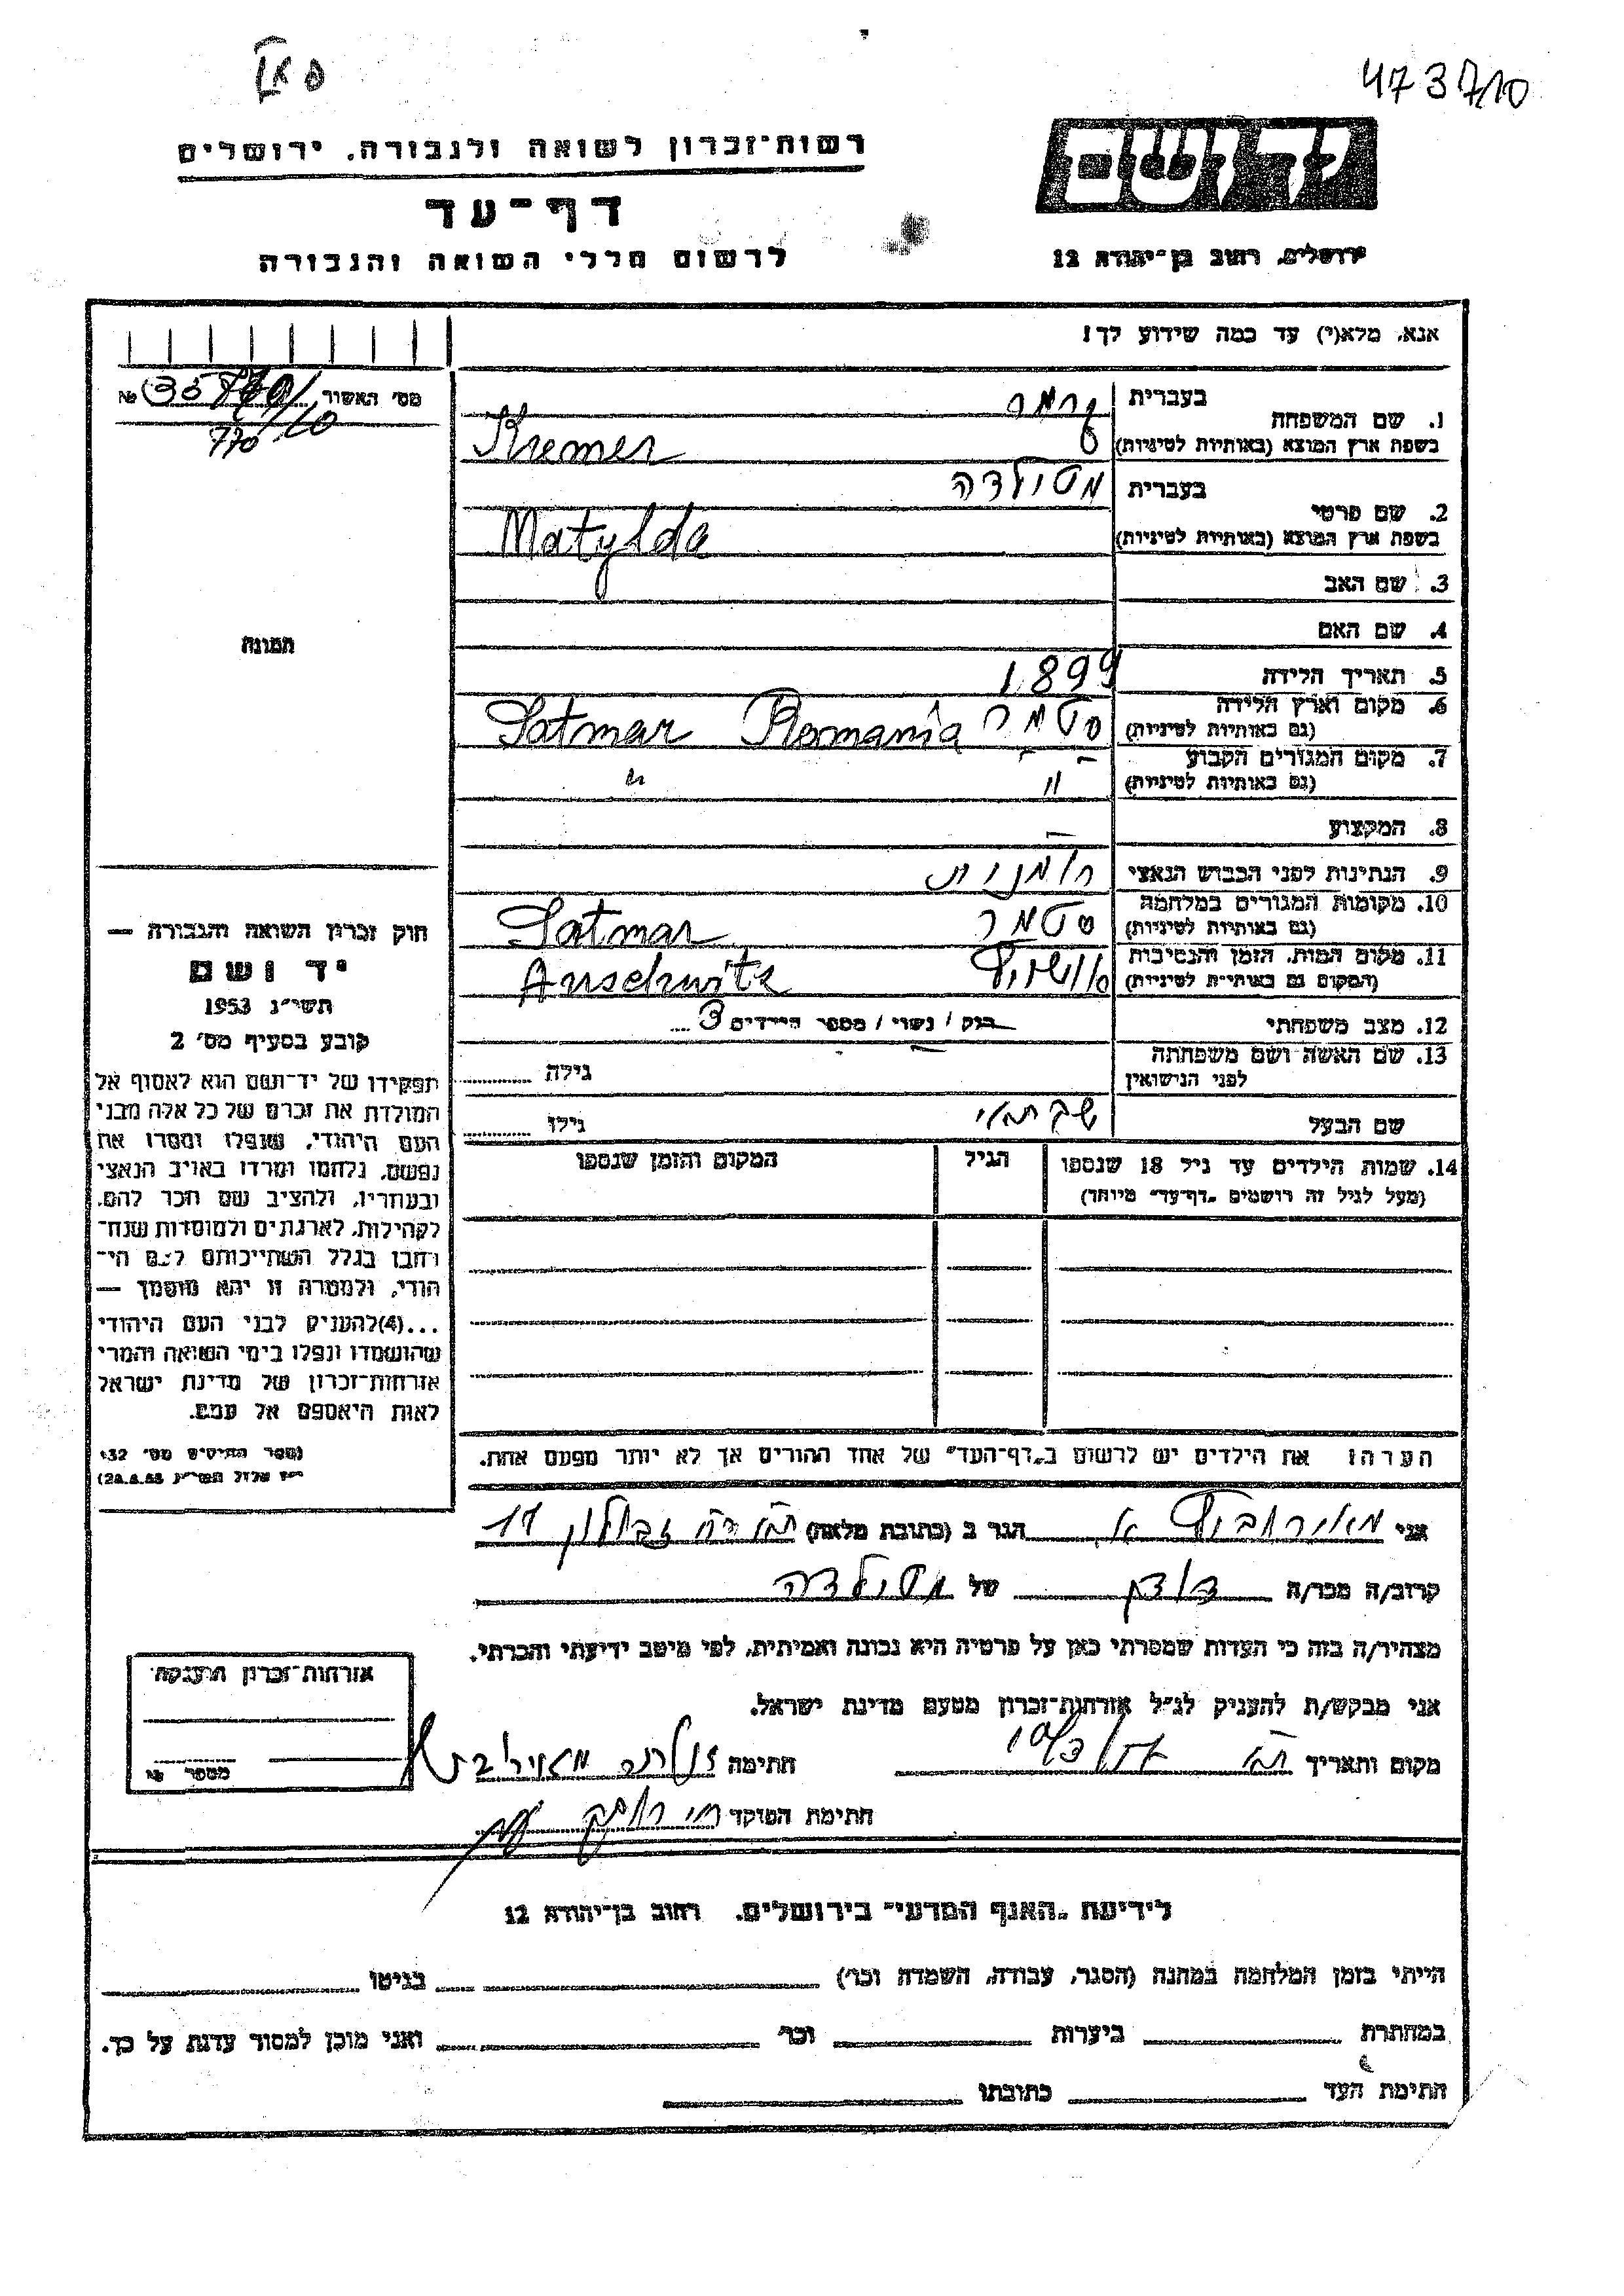 473
יד ושם
רשות־זכרון לשואה ולגבורה, ירושלים
דף־עד
לרשום חללי השואה והגבורה
ירושלים, רחוב בן־יהודה 12
אנא, מלא(י) עד כמה שידוע לך!
מס׳ האשור №
770
1. שם המשפחה
בעברית קרמר
בשפת ארץ המוצא (באותיות לטיניות) Kremer
2. שם פרטי
בעברית מטילדה
בשפת ארץ המוצא (באותיות לטיניות) Matylda
3. שם האב
4. שם האם
5. תאריך הלידה 1899
6. מקום וארץ הלידה
(גם באותיות לטיניות) סטמר Satmar Romania
7. מקום המגורים הקבוע
(גם באותיות לטיניות) " "
8. המקצוע —
9. הנתינות לפני הכבוש הנאצי רומנית
10. מקומות המגורים במלחמה
(גם באותיות לטיניות) סטמר Satmar
11. מקום המות, הזמן והנסיבות
(המקום גם באותיות לטיניות) Auschwitz
12. מצב משפחתי רווק / נשוי / מספר הילדים 3
13. שם האשה ושם משפחתה
לפני הנישואין גילה
שם הבעל שבתאי גילו
14. שמות הילדים עד גיל 18 שנספו הגיל המקום והזמן שנספו
(מעל לגיל זה רושמים „דף־עד" מיוחד)
הערה: את הילדים יש לרשום ב„דף־העד" של אחד ההורים אך לא יותר מפעם אחת.
תמונה
חוק זכרון השואה והגבורה —
יד ושם
תשי״ג 1953
קובע בסעיף מס׳ 2
תפקידו של יד־ושם הוא לאסוף אל
המולדת את זכרם של כל אלה מבני
העם היהודי, שנפלו ומסרו את
נפשם, נלחמו ומרדו באויב הנאצי
ובעוזריו, ולהציב שם וזכר להם,
לקהילות, לארגונים ולמוסדות שנח־
רבו בגלל השתייכותם לעם הי־
הודי, ולמטרה זו יהא מוסמך —
...(4) להעניק לבני העם היהודי
שהושמדו ונפלו בימי השואה והמרי
אזרחות־זכרון של מדינת ישראל
לאות היאספם אל עמם.
(ספר החוקים מס׳ 132
אני הגר ב (כתובת מלאה) זבולון 11
קרוב/ה מכר/ה של מטילדה
מצהיר/ה בזה כי העדות שמסרתי כאן על פרטיה היא נכונה ואמיתית, לפי מיטב ידיעתי והכרתי.
אני מבקש/ת להעניק לנ״ל אזרחות־זכרון מטעם מדינת ישראל.
מקום ותאריך חתימה
חתימת הפוקד
אזרחות־זכרון הוענקה
מספר №
לידיעת „האגף המדעי" בירושלים, רחוב בן־יהודה 12
הייתי בזמן המלחמה במחנה (הסגר, עבודה, השמדה וכו׳) בגיטו
במחתרת ביערות וכו׳ ואני מוכן למסור עדות על כך.
חתימת העד כתובתו